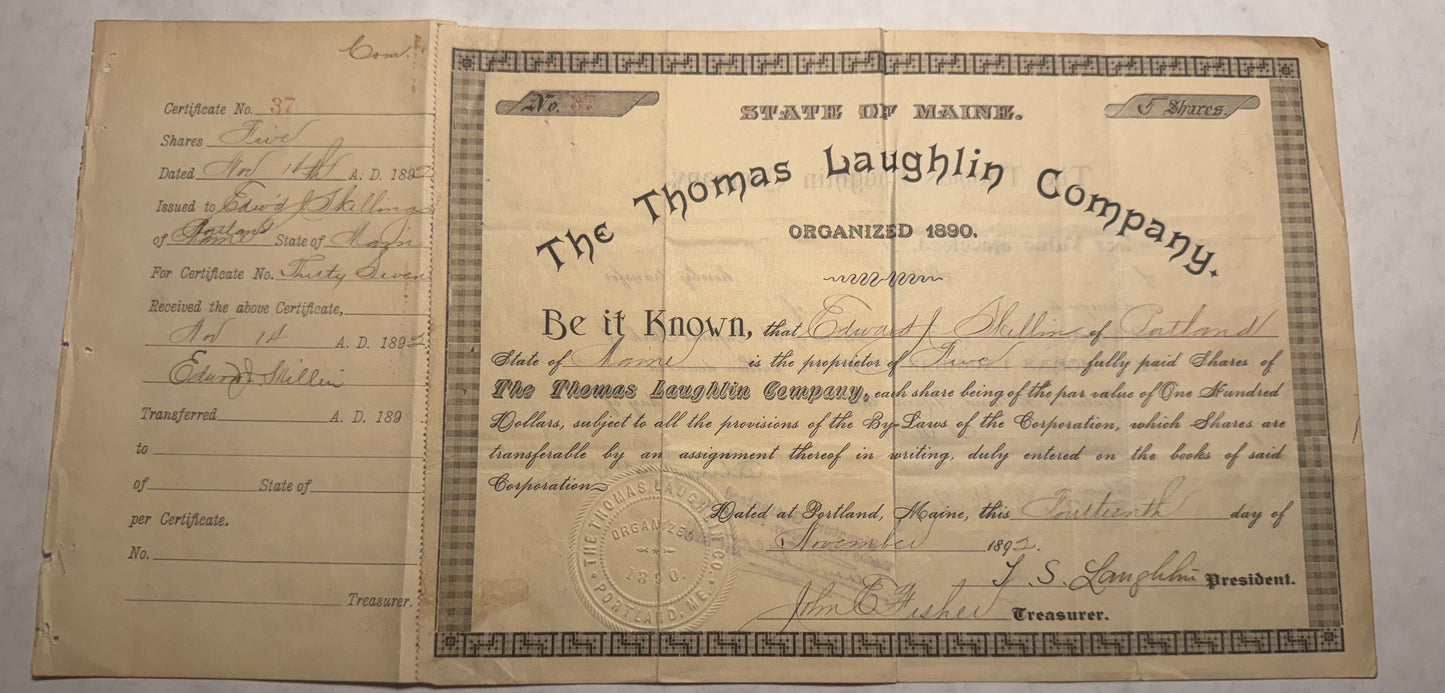 Com.
Certificate No. 37
Shares Five
Dated Nov 14th A. D. 1892
Issued to Edw'd J. Skillings
of Portland State of Maine
For Certificate No. Thirty Seven
Received the above Certificate,
Nov 14 A. D. 1892
Edward J Skillin
Transferred A. D. 189
to
of State of
per Certificate.
No.
Treasurer.
No. 37
STATE OF MAINE.
5 Shares.
The Thomas Laughlin Company.
ORGANIZED 1890.
Be it Known, that Edward J. Skillin of Portland
State of Maine is the proprietor of Five fully paid Shares of
The Thomas Laughlin Company, each share being of the par value of One Hundred
Dollars, subject to all the provisions of the By-Laws of the Corporation, which Shares are
transferable by an assignment thereof in writing, duly entered on the books of said
Corporation
Dated at Portland, Maine, this Fourteenth day of
November 1892.
T. S. Laughlin President.
John C Fisher Treasurer.
THE THOMAS LAUGHLIN CO.
ORGANIZED
1890.
PORTLAND, ME.